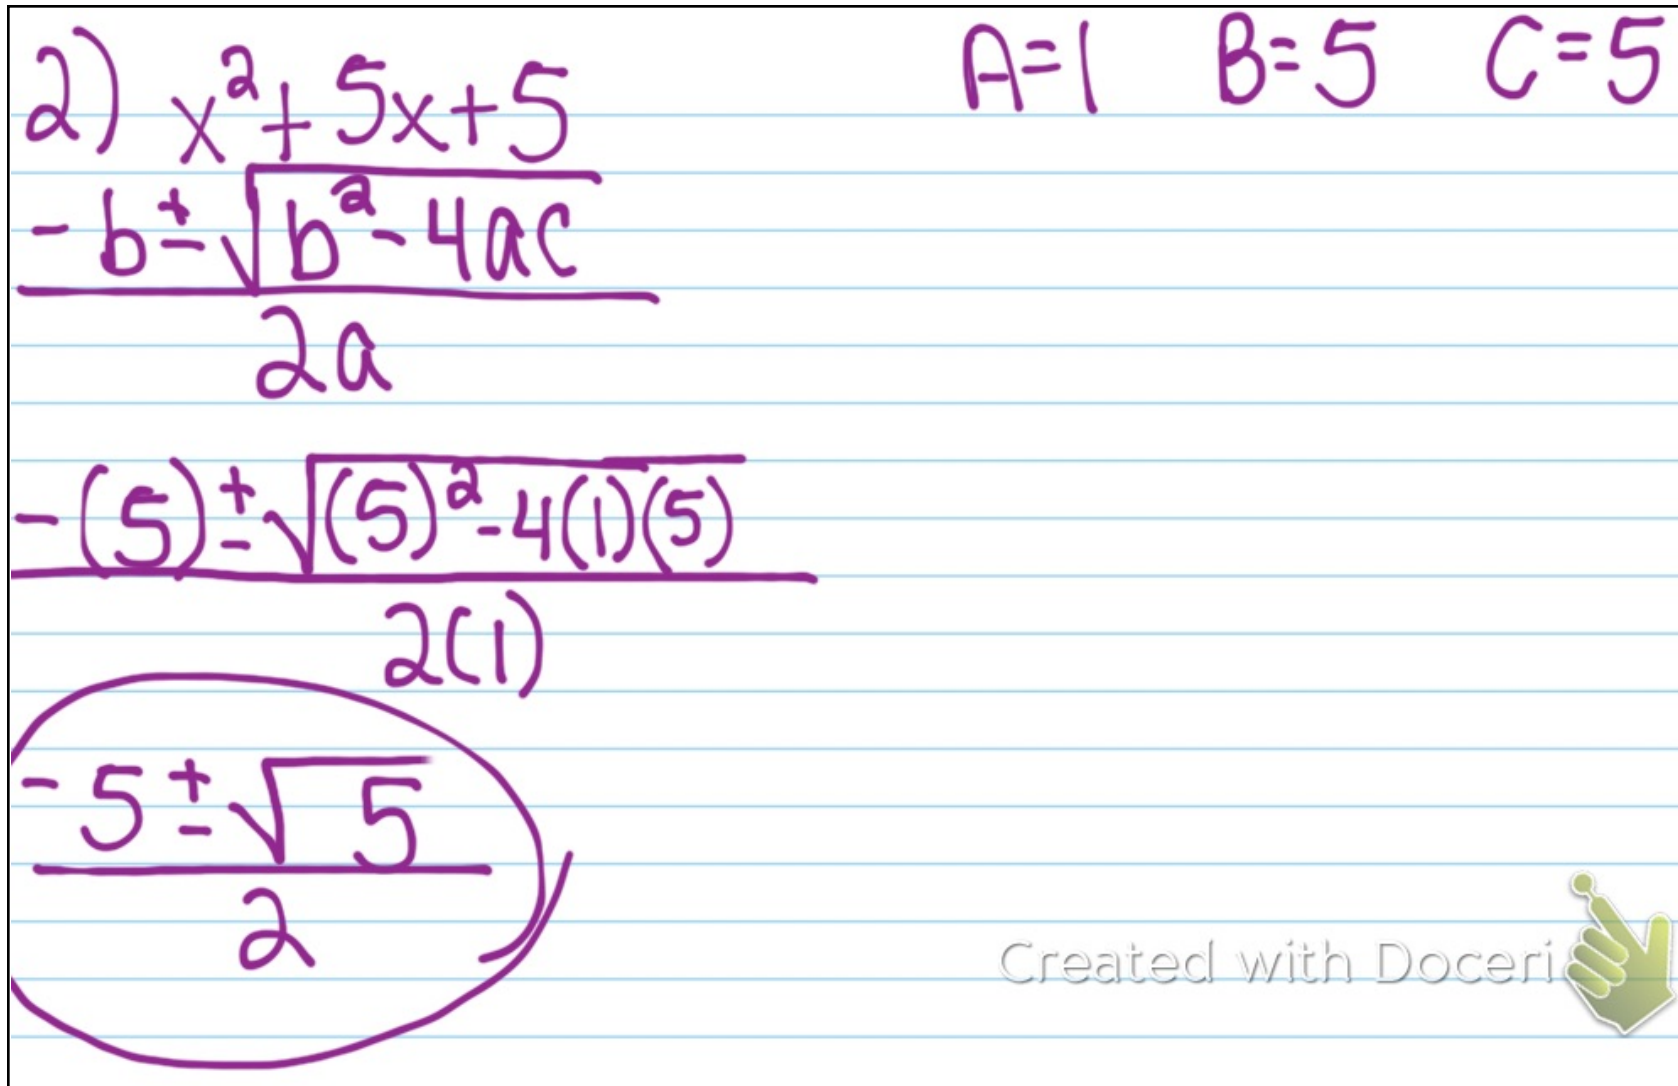 2) x²+5x+5 A=1 B=5 C=5
-b±√b²-4ac
2a
-(5)±√(5)²-4(1)(5)
2(1)
-5±√5
2
Created with Doceri